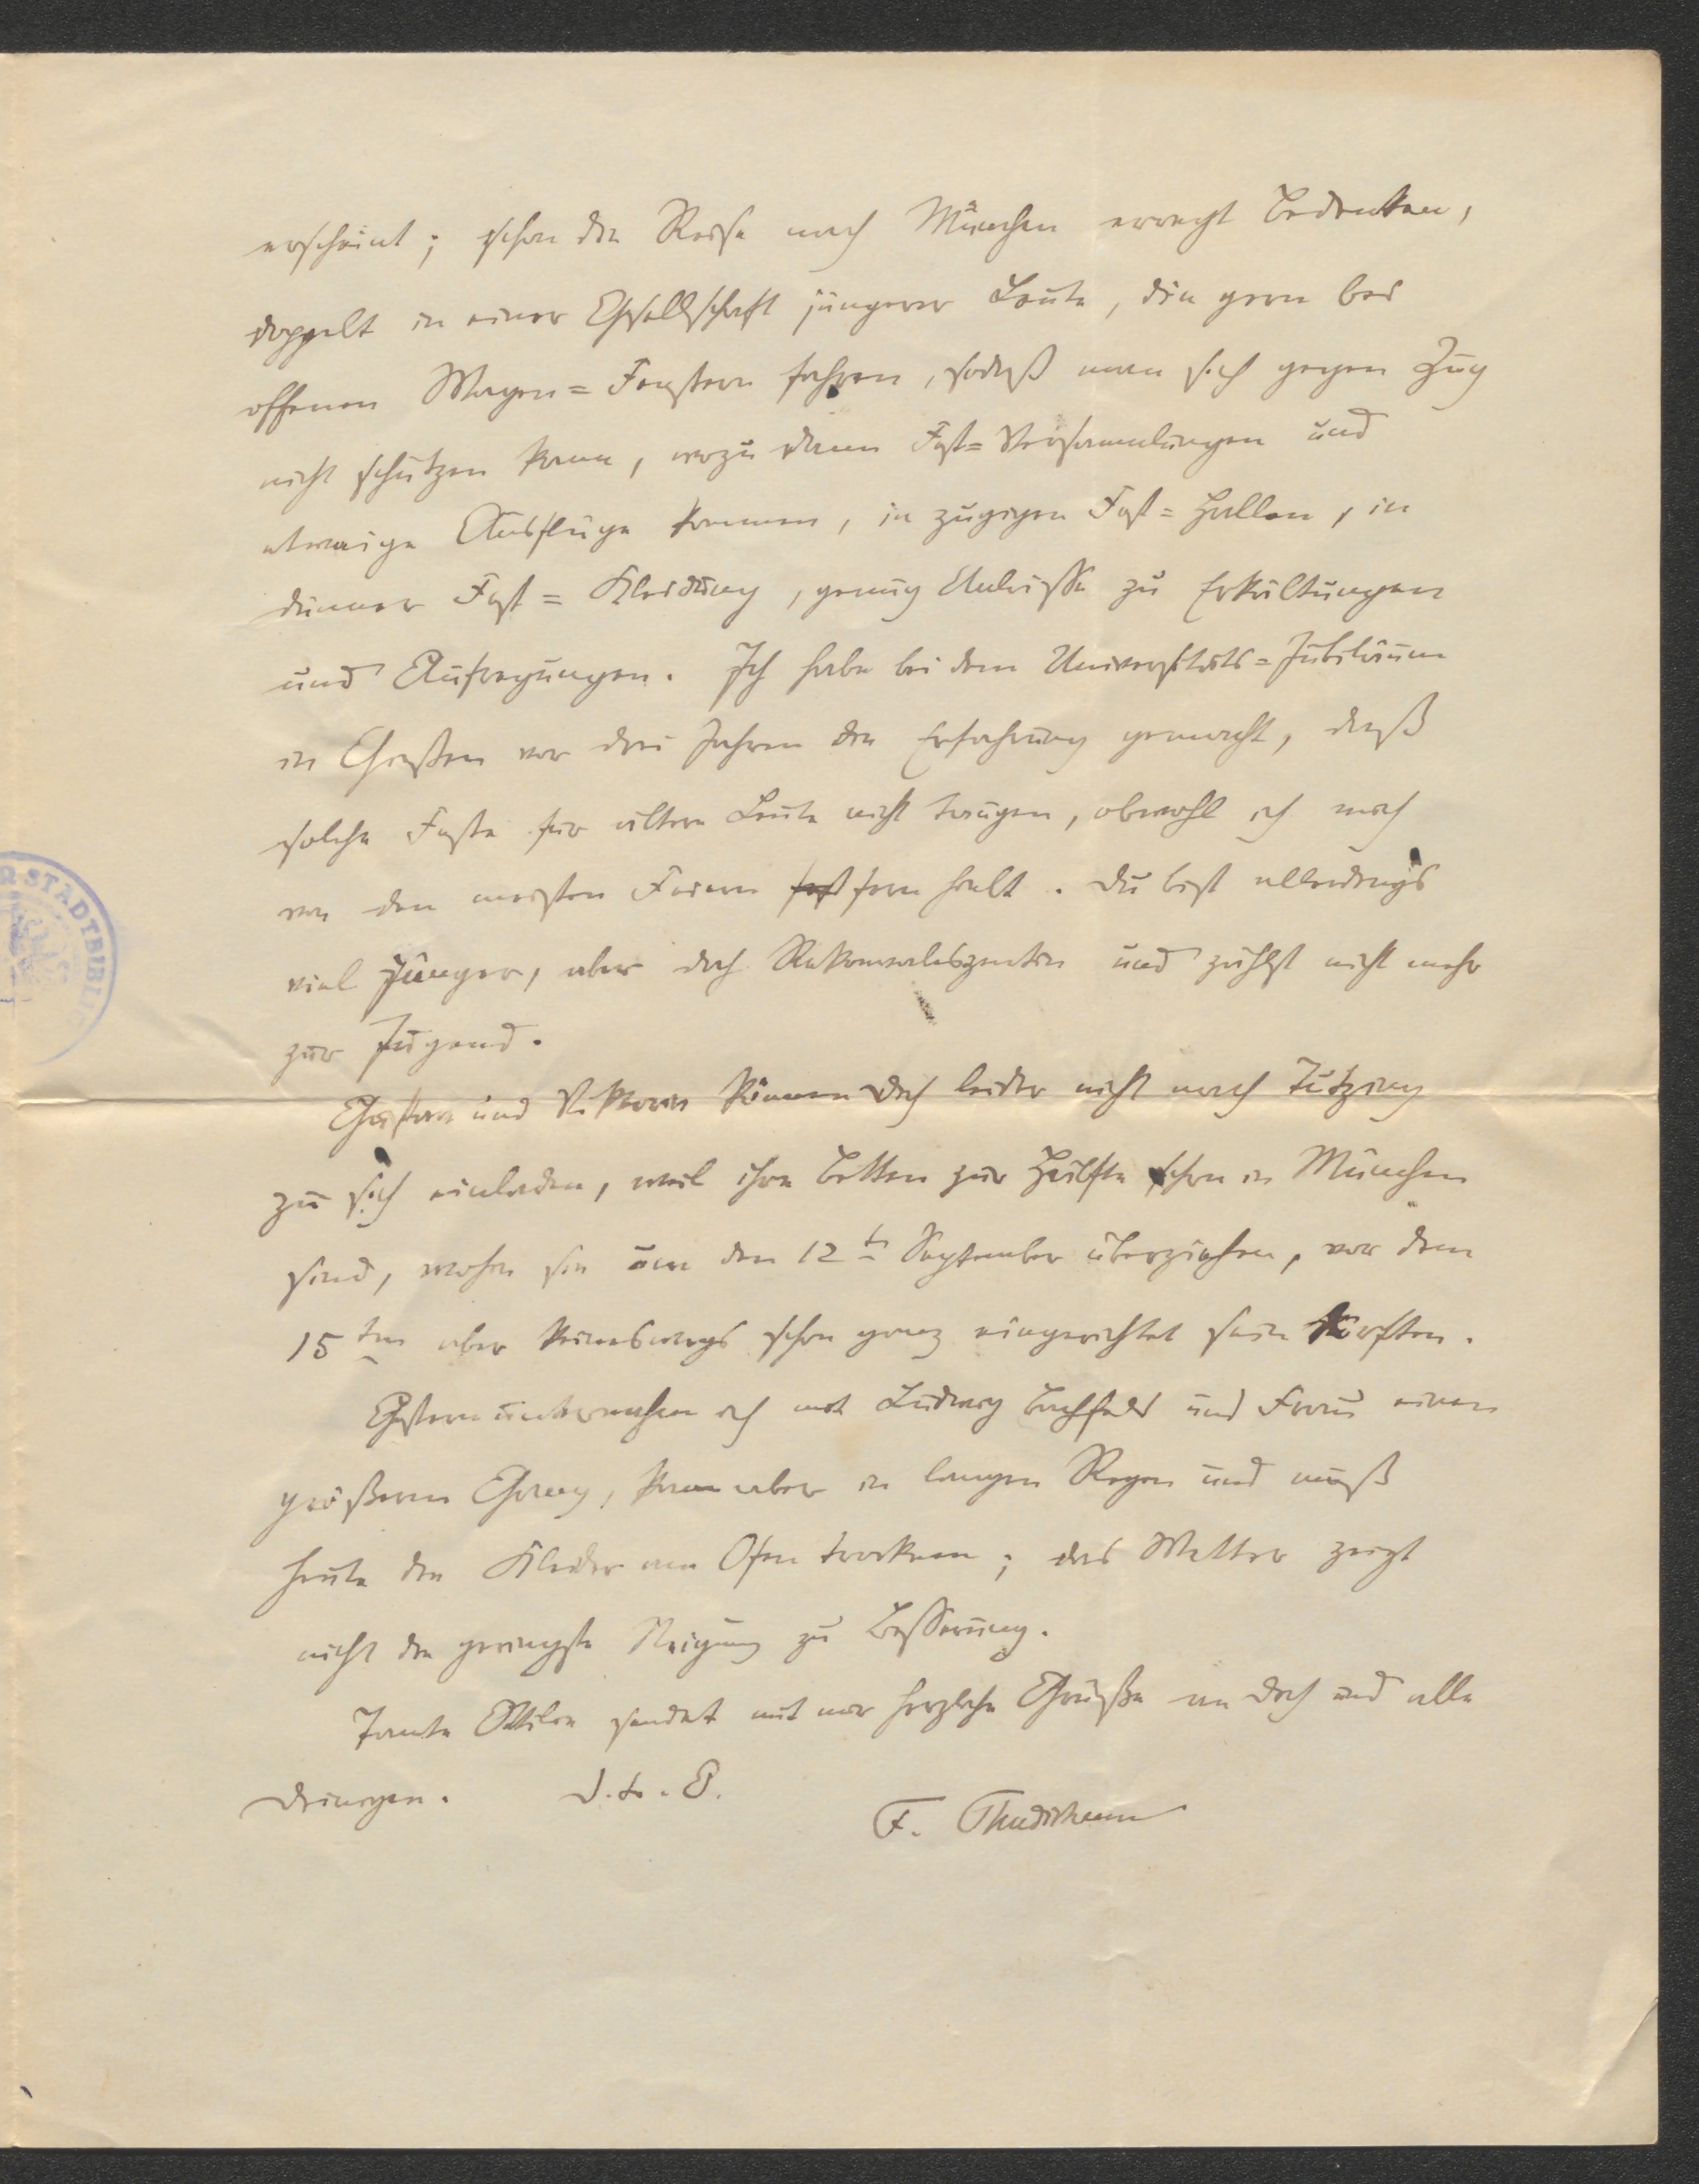 erscheint; schon die Reise nach München erregt Bedenken,
doppelt in einer Gesellschaft jüngerer Leute, die gern bei
offenen Wagen=Fenstern fahren, sodaß man sich gegen Zug
nicht schützen kann, wozu dann Fest=Versammlungen und
etwaige Ausflüge kommen, in zugigen Fest=Hallen, in
dünner Fest=Kleidung, genug Anlässe zu Erkältungen
und Aufregungen. Ich habe bei dem Universitäts=Jubiläum
in Gießen vor drei Jahren die Erfahrung gemacht, daß
solche Feste für ältere Leute nicht taugen, obwohl ich mich
von den meisten Feiern fern hielt. Du bist allerdings
viel jünger, aber doch Rekonvaleszentin und zählst nicht mehr
zur Jugend.
und Viktorin können Dich leider nicht nach Tutzing
zu sich einladen, weil ihre Betten zur Hälfte schon in München
sind, wohin sie um den 12t September überziehen, vor dem
15ten aber keineswegs schon ganz eingerichtet sein dürften.
Gestern unternahm ich mit Ludwig und Frau einen
größeren Gang, kam aber in langen Regen und muß
heute die Kleider am Ofen trocknen; das Wetter zeigt
nicht die geringste Neigung zu Besserung.
Tante Ottilie sendet mit mir herzliche Grüße an Dich und alle
Deinigen. D. tr. O.
F. Thudichum
STADTBIBL